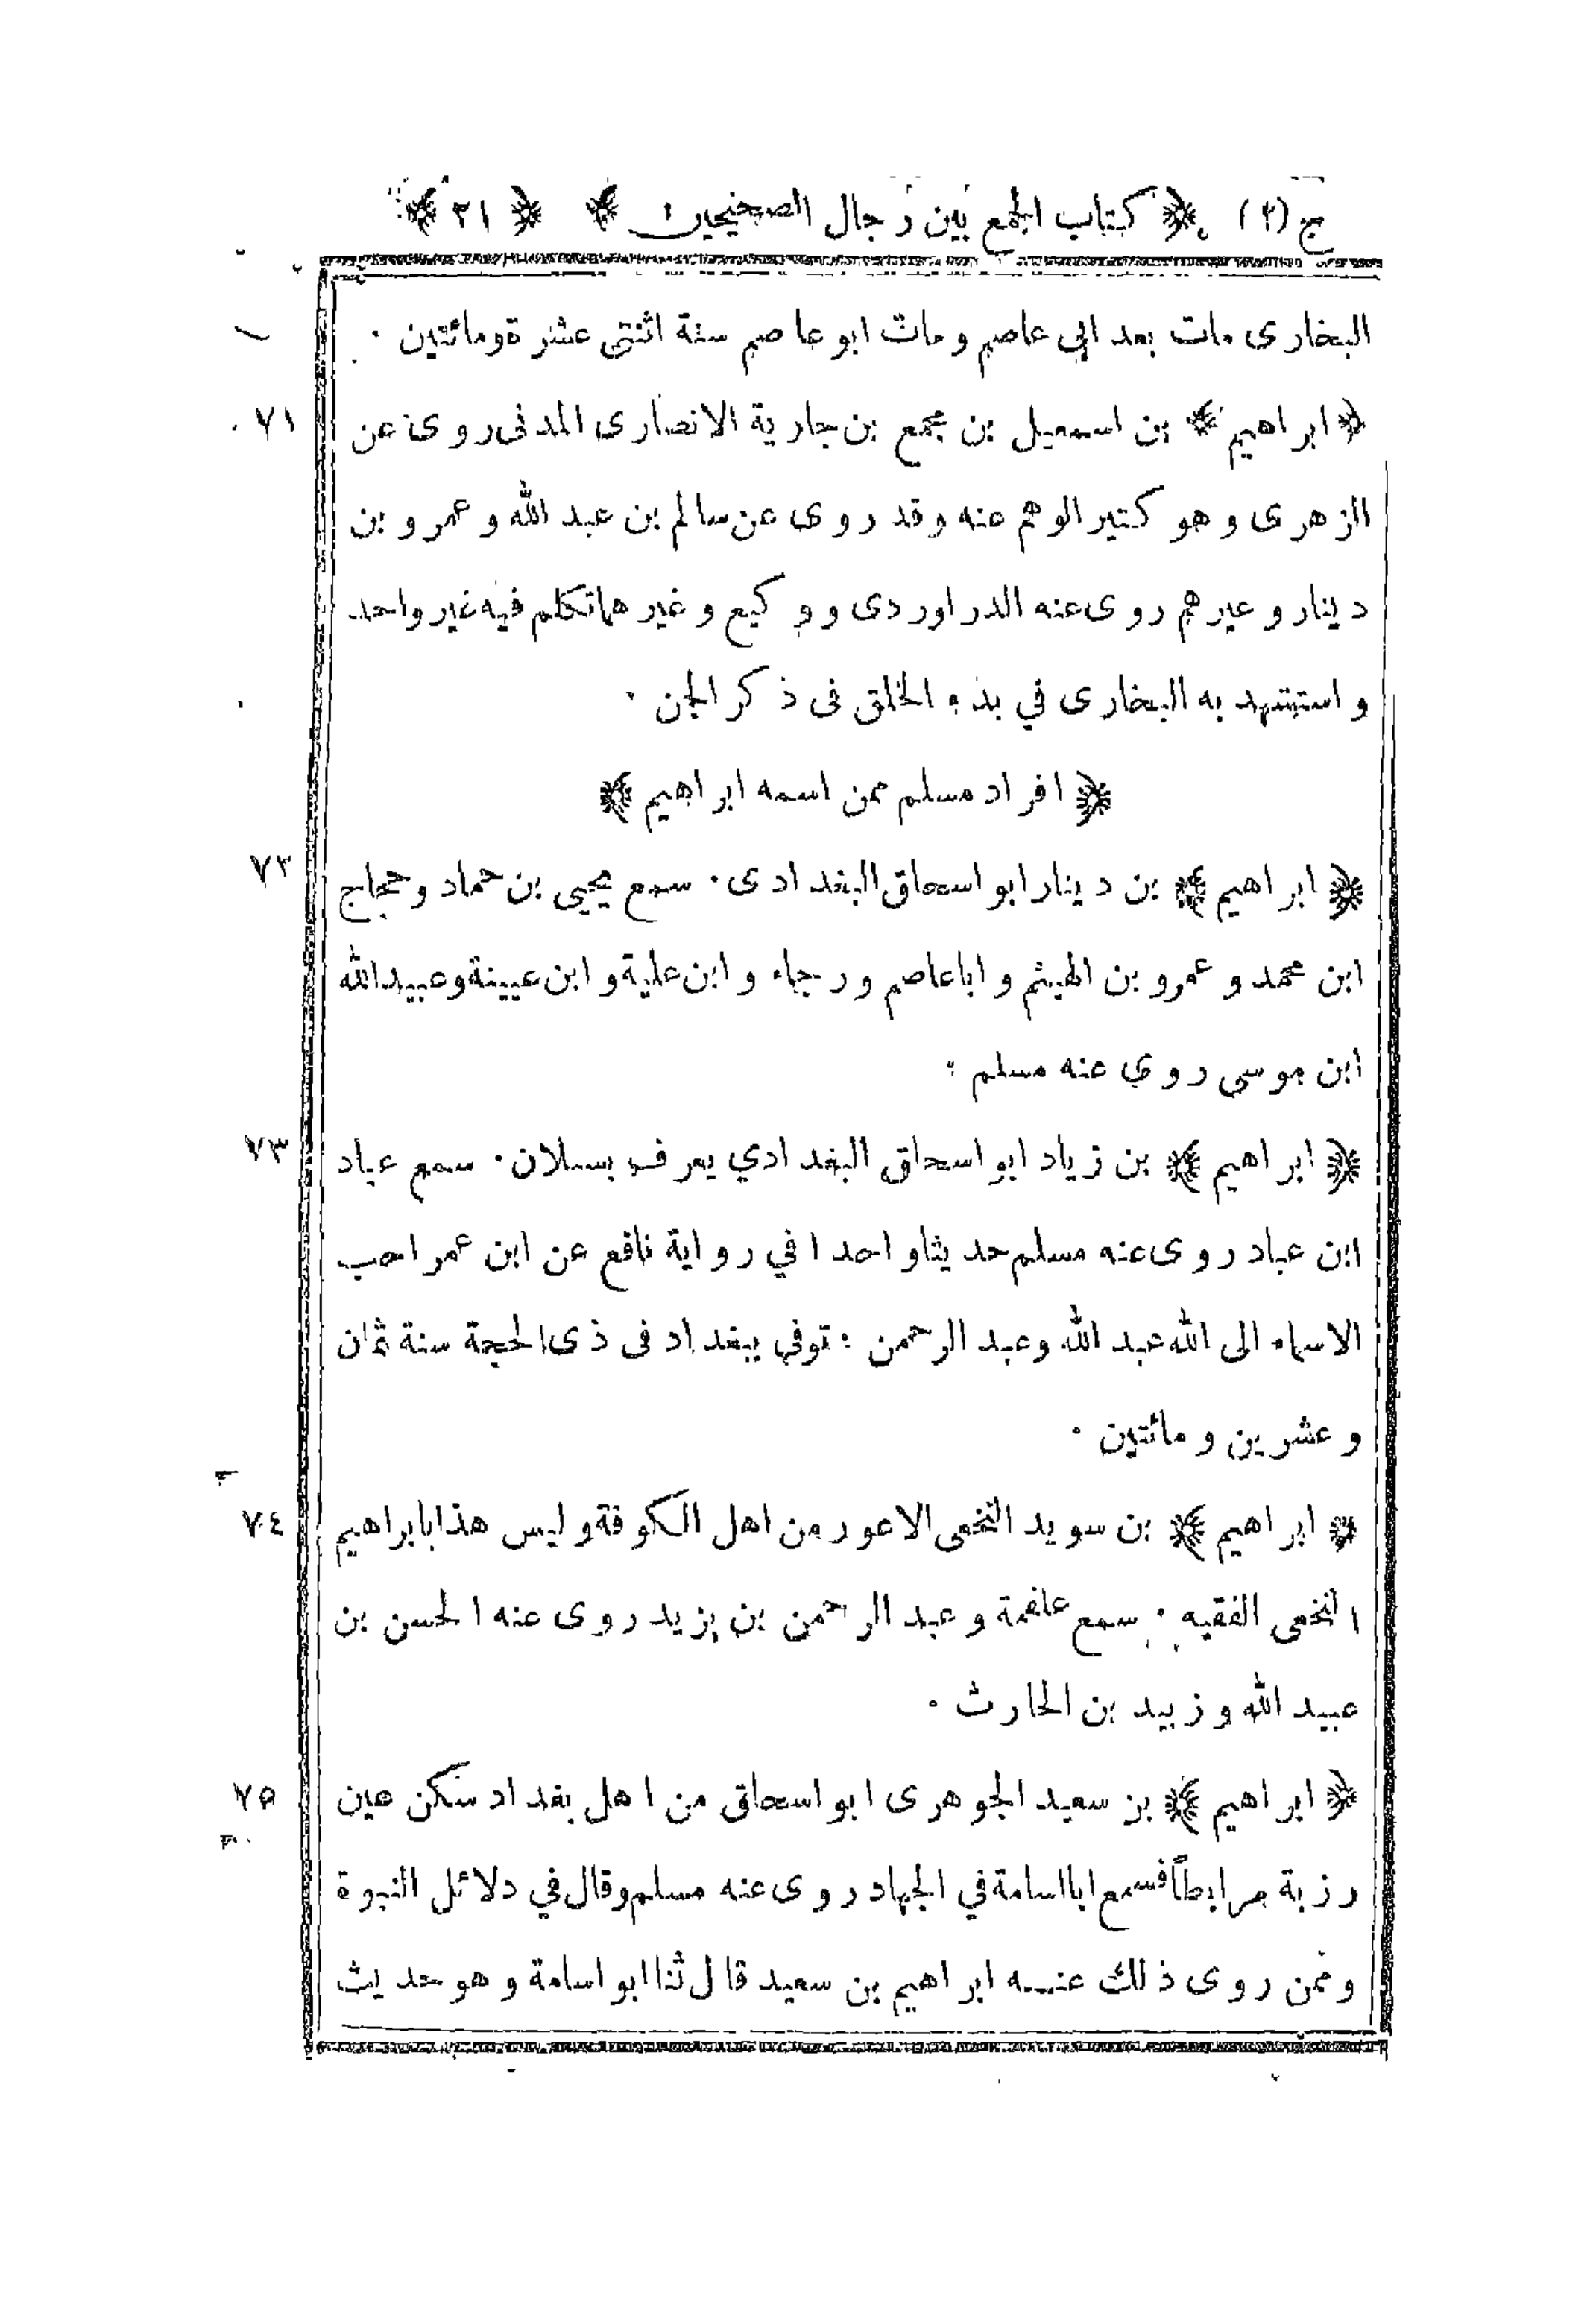 ج (٢) ﴿ كتاب الجمع بين رجال الصحيحين ﴾ ﴿ ٢١ ﴾
البخارى مات بعد ابي عاصم ومات ابو عاصم سنة اثنتى عشرة ومائتين ٠
﴿ ابراهيم ﴾ بن اسمعيل بن مجمع بن جارية الانصارى المدنى روى عن ٧١
الزهرى وهو كثير الوهم عنه وقد روى عن سالم بن عبد الله وعمرو بن
دينار وغيرهم روى عنه الدراوردى ووكيع وغيرهما تكلم فيه غير واحد
واستشهد به البخارى في بدء الخلق فى ذكر الجن ٠
﴿ افراد مسلم ممن اسمه ابراهيم ﴾
﴿ ابراهيم ﴾ بن دينار ابو اسحاق البغدادى ٠ سمع يحيى بن حماد وحجاج ٧٢
ابن محمد وعمرو بن الهيثم واباعاصم ورجاء وابن علية وابن عيينة وعبيد الله
ابن موسى روى عنه مسلم :
﴿ ابراهيم ﴾ بن زياد ابو اسحاق البغدادي يعرف بسبلان ٠ سمع عباد ٧٣
ابن عباد روى عنه مسلم حديثا واحدا في رواية نافع عن ابن عمر احب
الاسماء الى الله عبد الله وعبد الرحمن : توفى ببغداد فى ذى الحجة سنة ثمان
وعشرين ومائتين ٠
﴿ ابراهيم ﴾ بن سويد النخعى الاعور من اهل الكوفة وليس هذا بابراهيم ٧٤
النخعى الفقيه ٠ سمع علقمة وعبد الرحمن بن يزيد روى عنه الحسن بن
عبيد الله وزبيد بن الحارث ٠
﴿ ابراهيم ﴾ بن سعيد الجوهرى ابو اسحاق من اهل بغداد سكن عين ٧٥
رزبة مرابطاً فسمع ابا اسامة في الجهاد روى عنه مسلم وقال في دلائل النبوة
وممن روى ذلك عنه ابراهيم بن سعيد قال ثنا ابو اسامة وهو حديث